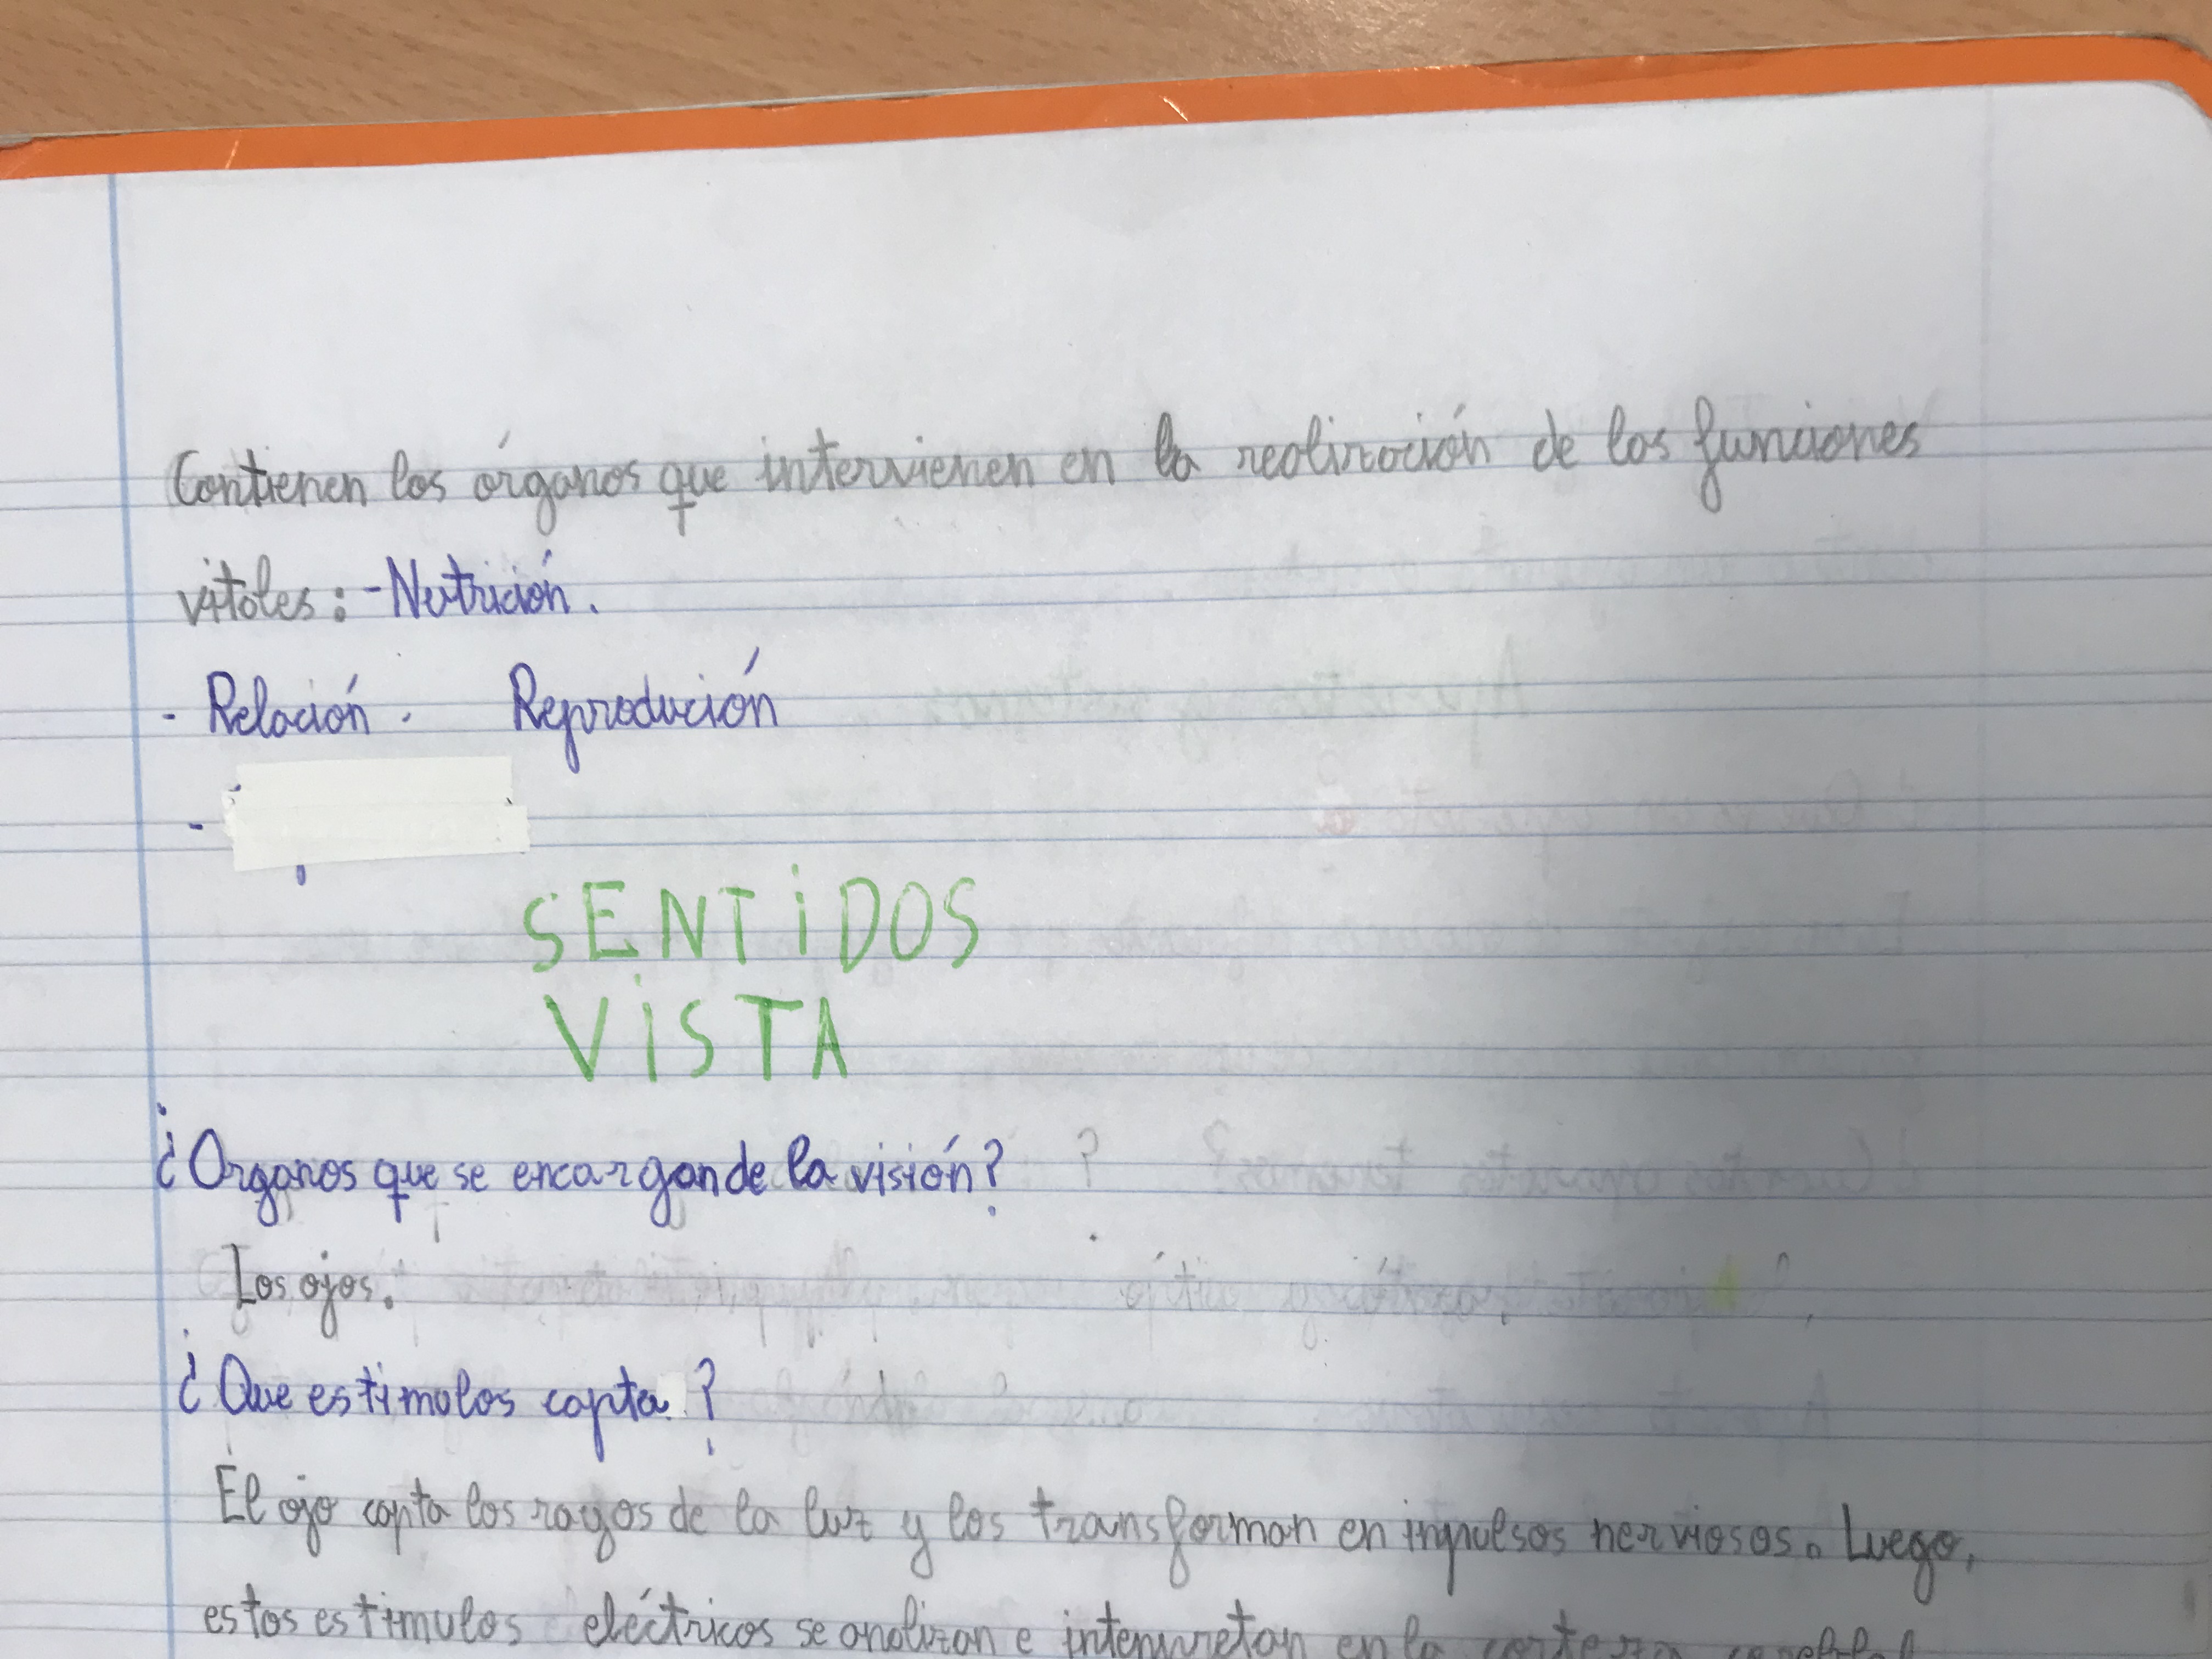 Contienen los órganos que intervienen en la realización de las funciones
vitales: - Nutrición.
- Relación. Reprodución
-
SENTiDOS
ViSTA
¿Organos que se encargan de la visión?
Los ojos.
¿Que estimulos capta ?
El ojo capta los rayos de la luz y los transforman en inpulsos nerviosos. Luego,
estos estimulos eléctricos se analizan e interpretan en la corteza